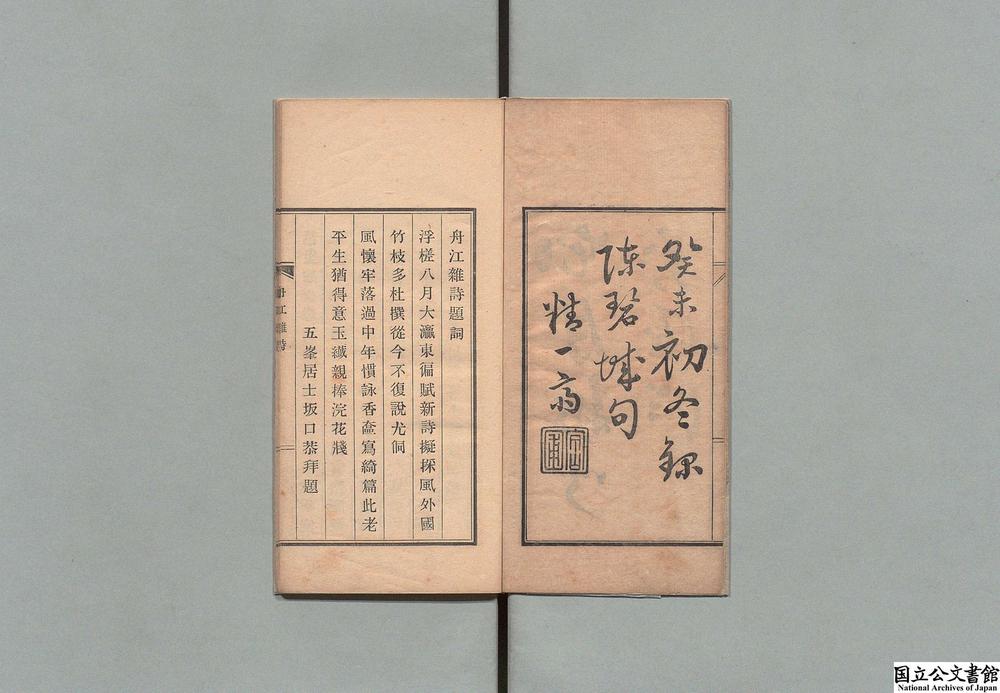 癸未初冬録
陳碧城句
精一斎
舟江雜詩題詞
浮槎八月大瀛東徧賦新詩擬採風外國
竹枝多杜撰從今不復說尤侗
風懷牢落過中年慣詠香奩寫綺篇此老
平生猶得意玉纖親捧浣花牋
五峯居士坂口恭拜題
舟江雜詩
国立公文書館
National Archives of Japan